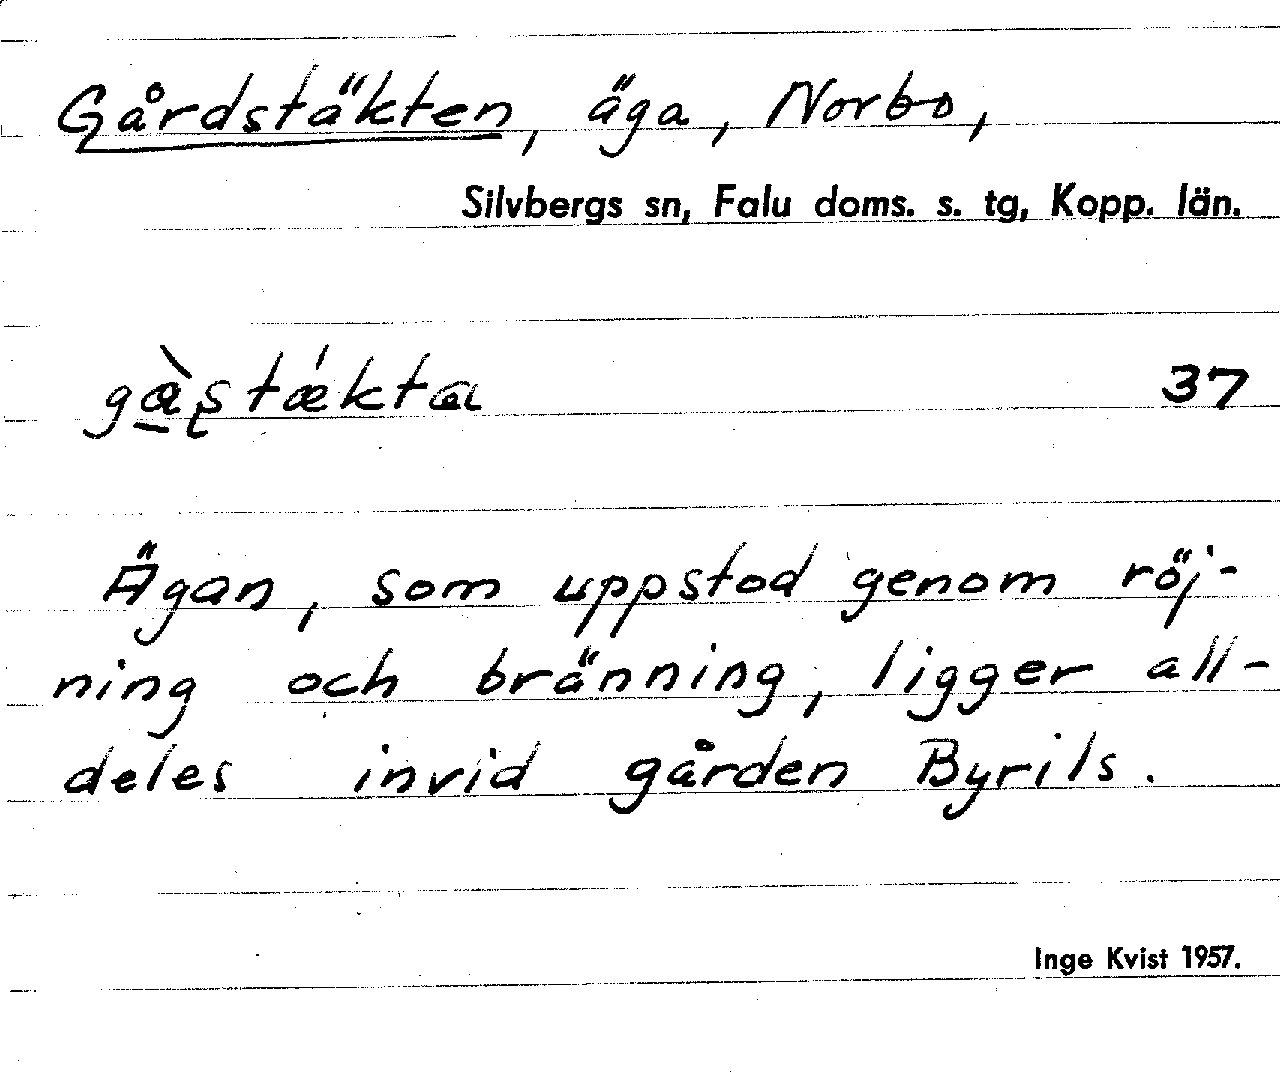 Gårdstäkten, äga, Norbo,
Silvbergs sn, Falu doms. s. tg, Kopp. län.
37
Ägan, som uppstod genom röj-
ning och bränning, ligger all-
deles invid gården Byrils.
Inge Kvist 1957.